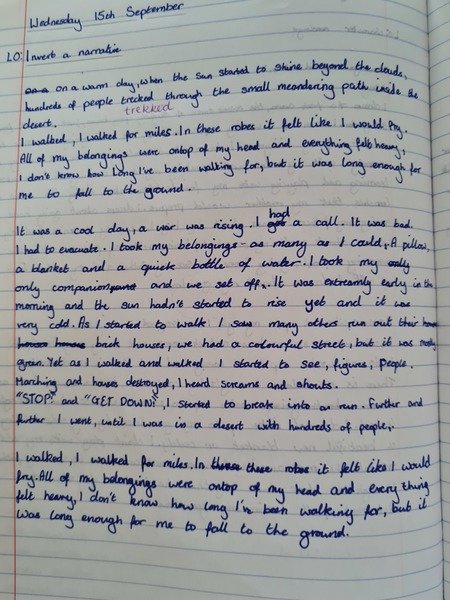 Wednesday 15th September
LO: Invert a narrative
on a warm day, when the sun started to shine beyond the clouds,
hundreds of people trecked through the small meandering path inside the
trekked
desert.
I walked, I walked for miles. In these robes it felt like I would fry.
All of my belongings were ontop of my head and everything felt heavy,
I don't know how long I've been walking for, but it was long enough for
me to fall to the ground.
It was a cool day, a war was rising. I had a call. It was bad.
I had to evacuate. I took my belongings - as many as I could, A pillow,
a blanket and a quick bottle of water. I took my only
only companion and we set off. It was extreamly early in the
morning and the sun hadn't started to rise yet and it was
very cold. As I started to walk I saw many others run out their home
house houses brick houses, we had a colourful street, but it was mostly
green. Yet as I walked and walked I started to see, figures, People.
Marching and houses destroyed, I heard screams and shouts.
"STOP!" and "GET DOWN!", I started to break into a run. Further and
further I went, until I was in a desert with hundreds of people,.
I walked, I walked for miles. In these these robes it felt like I would
fry. All of my belongings were ontop of my head and everything
felt heavy, I don't know how long I've been walking for, but it
was long enough for me to fall to the ground.